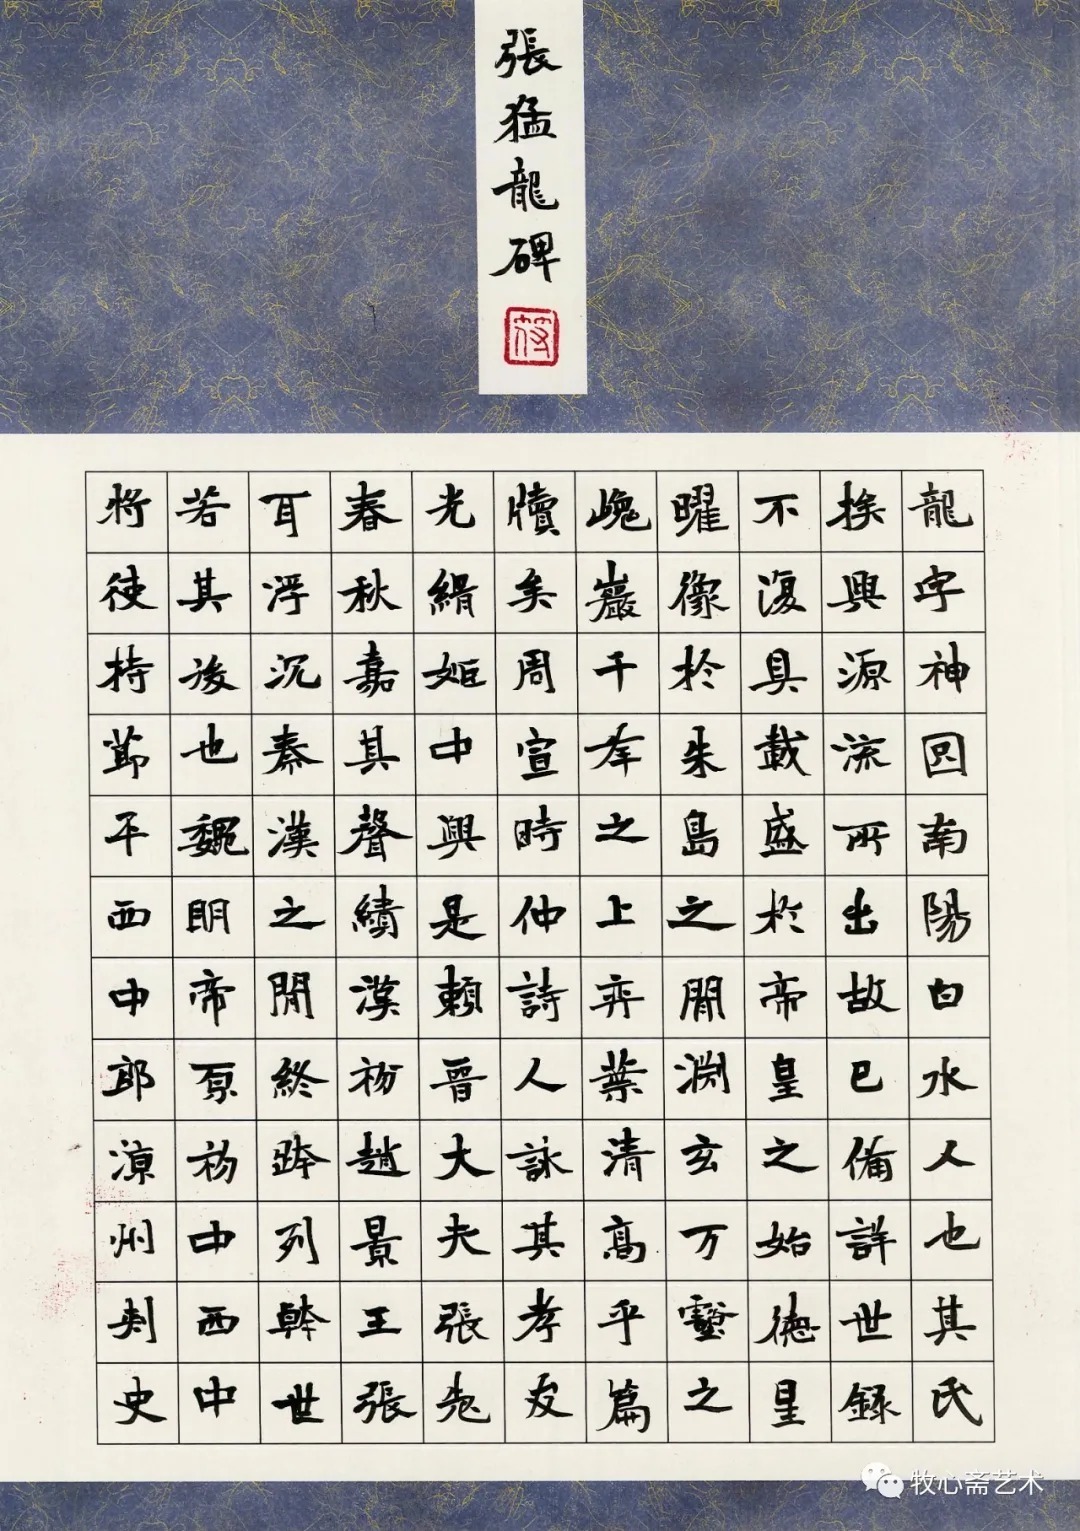 張猛龍碑
龍字神囧南陽白水人也其氏
族興源流所出故已備詳世錄
不復具載盛於帝皇之始德星
曜像於朱鳥之間淵玄万壑之
嵬巖千峯之上弈葉清高乎篇
牘矣周宣時仲詩人詠其孝友
光緝姬中興是賴晉大夫張老
春秋嘉其聲績漢初趙景王張
耳浮沉秦漢之間終跨列幹世
若其後也魏明帝景初中西中
將使持節平西中郎涼州刺史
牧心斋艺术